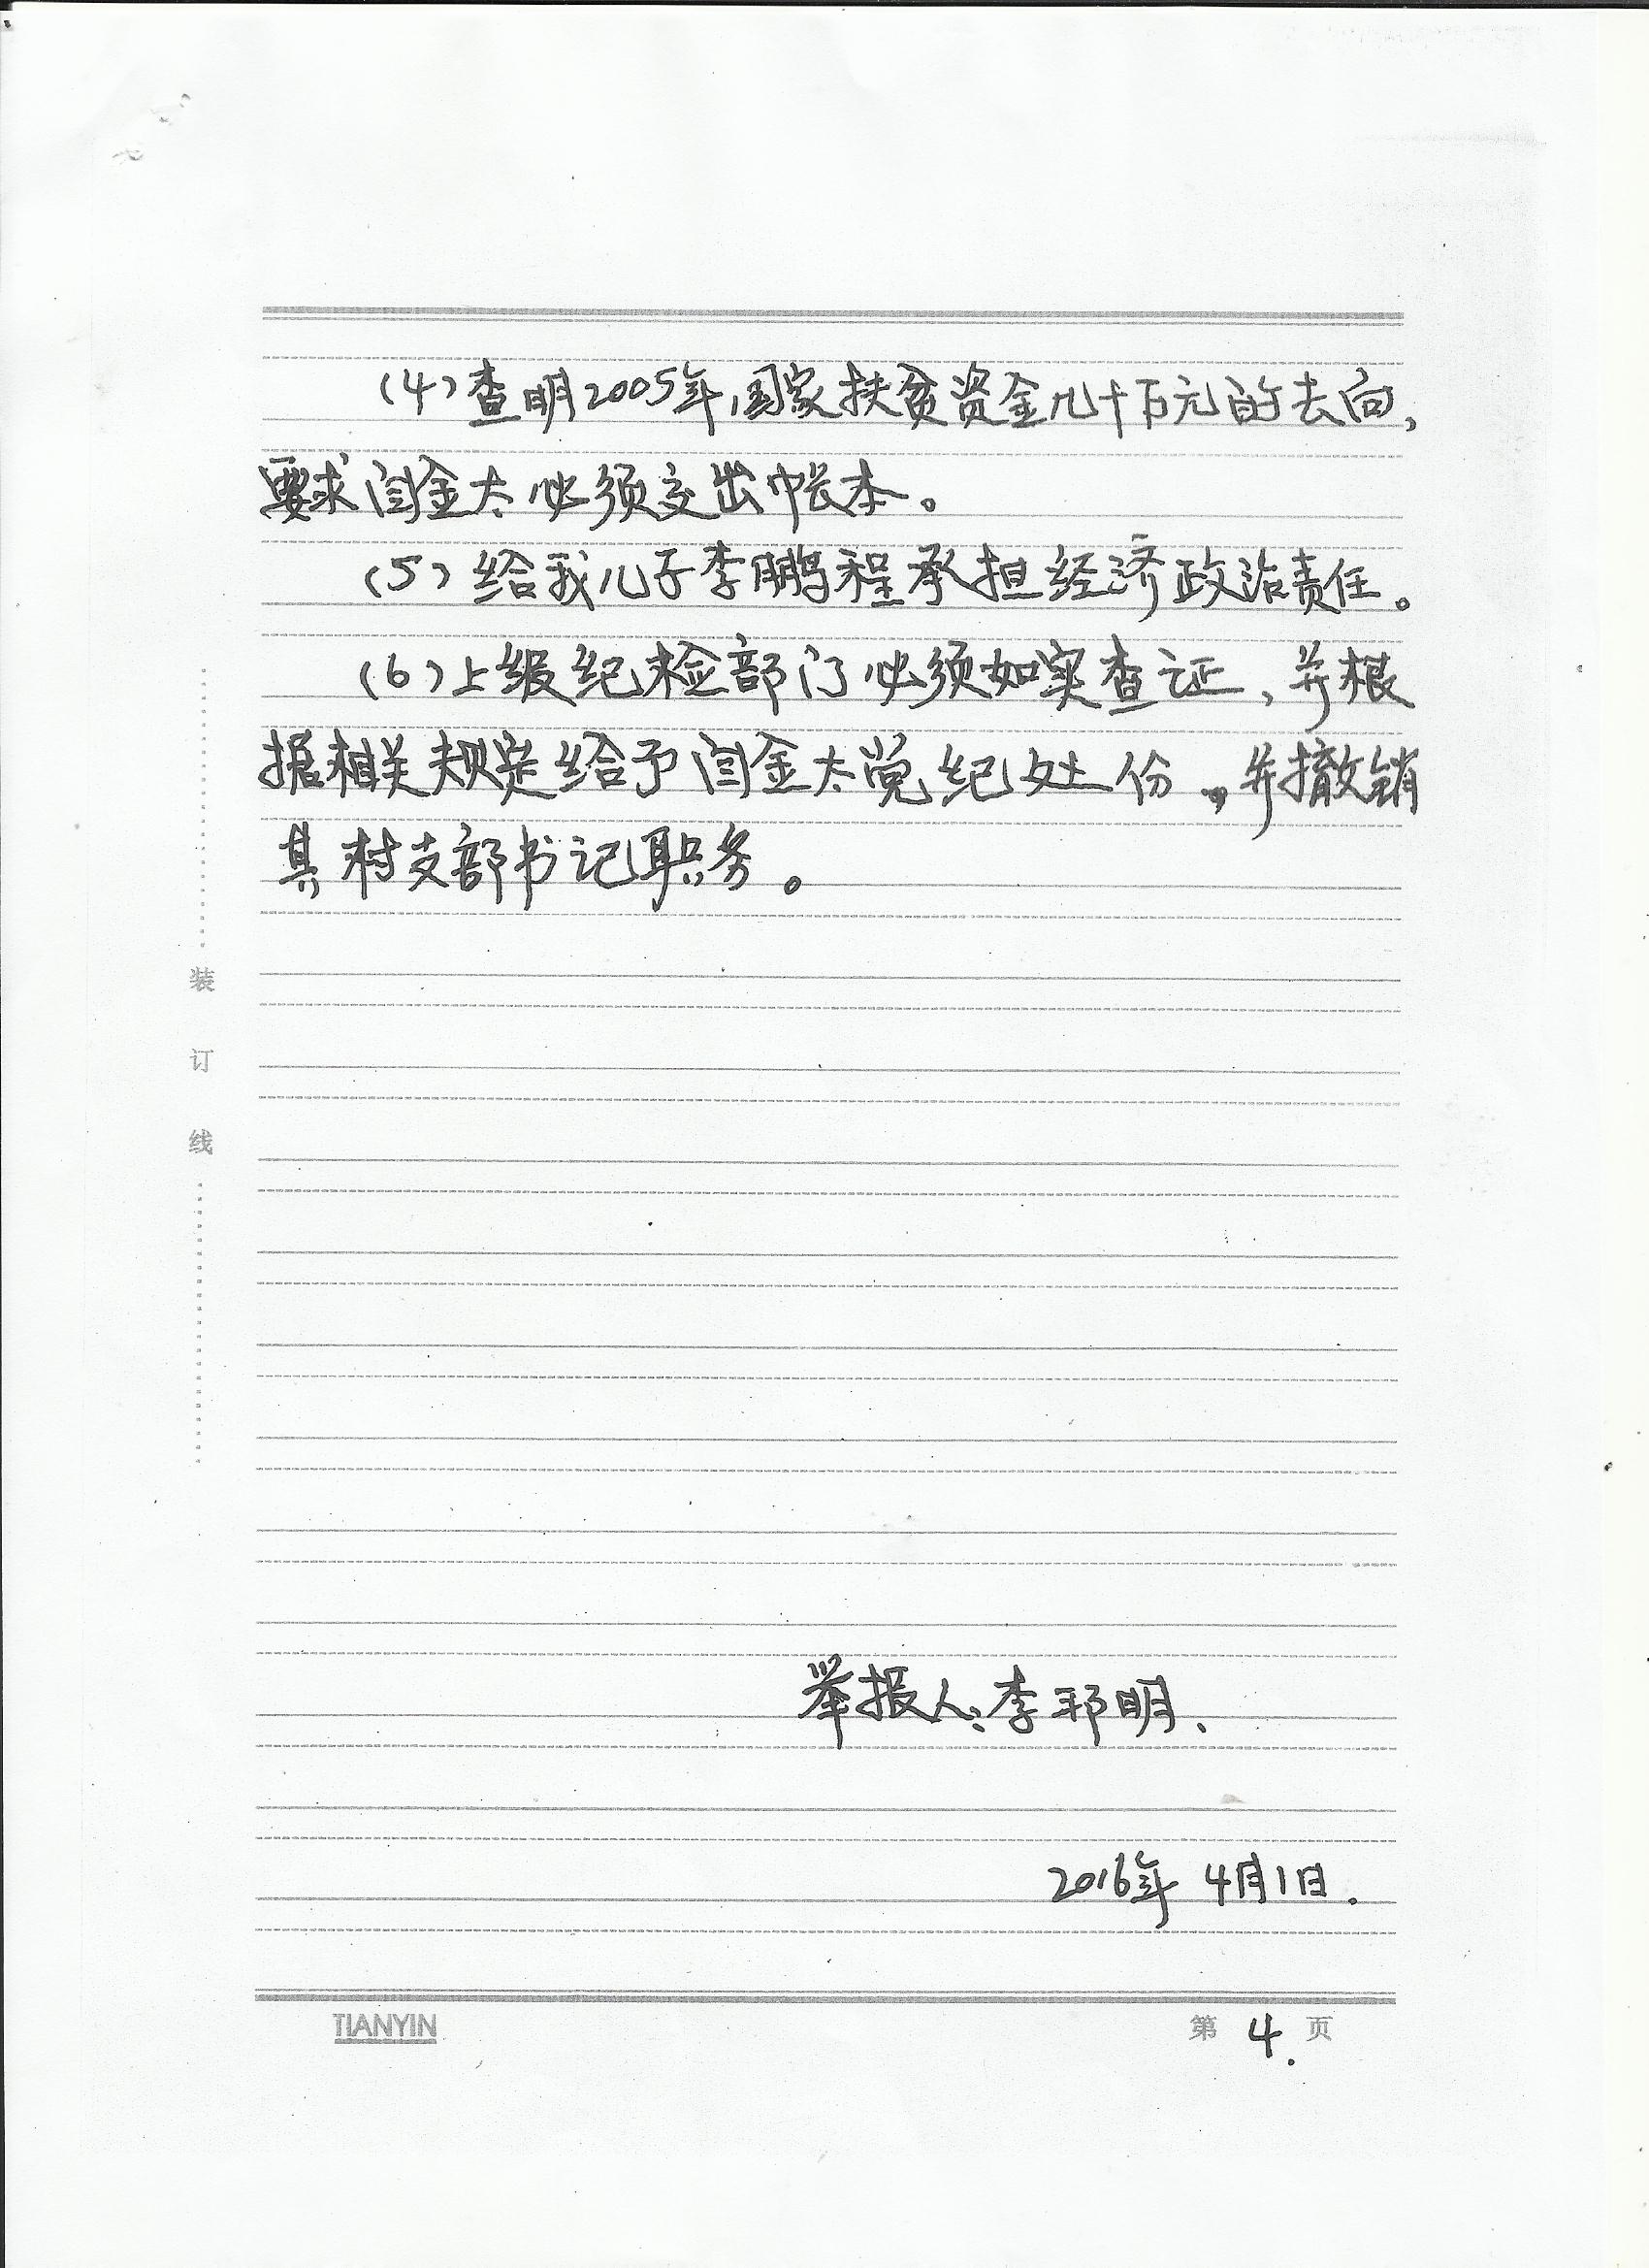 (4)查明2005年,国家扶贫资金几十万元的去向,
要求闫金太必须交出帐本。
(5)给我儿子李鹏程承担经济政治责任。
(6)上级纪检部门必须如实查证,并根
据相关规定给予闫金太党纪处份,并撤销
其村支部书记职务。
装
订
线
举报人:李邦明.
2016年 4月1日.
TIANYIN
第 4. 页